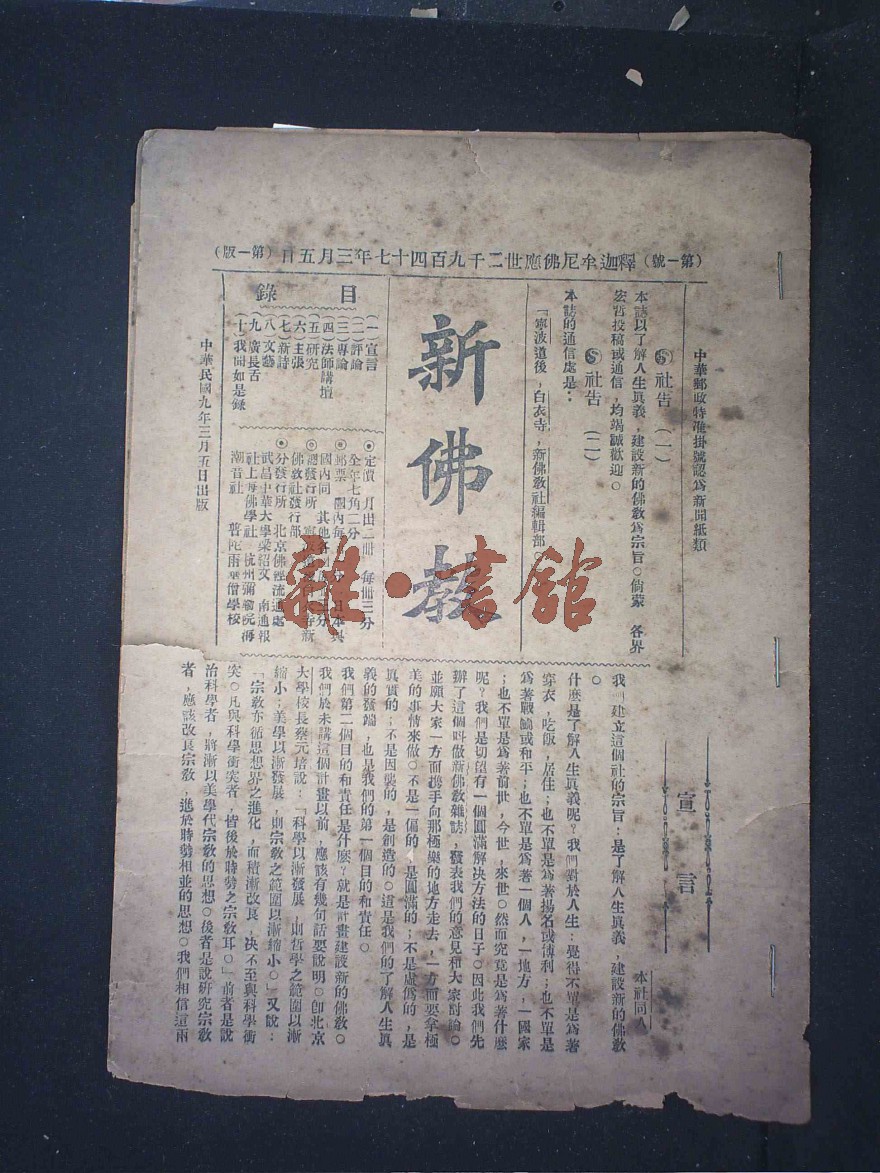 (第一號)釋迦牟尼佛應世二千九百四十七年三月五日(第一版)
中華郵政特准掛號認爲新聞紙類
社告(一)
本誌以了解人生眞義,建設新的佛敎爲宗旨。倘蒙 各界
宏哲投稿或通信,均竭誠歡迎。
社告(二)
本誌的通信處是:
「寧波道後,白衣寺,新佛敎社編輯部。
新佛教
目錄
(一)宣言
(二)評論
(三)專論
(四)法師講壇
(五)研究
(六)主張
(七)新詩
(八)文藝
(九)廣長舌
(十)我聞如是錄
◎定價 月出二册 每册三分
全年七角二分
◎郵票 國內每
國內同 其他各
◎總發行所
佛敎社發行部
◎分發行所 北京佛經流通處
武昌中華大學梁紹文 南通報
社上海佛學社 杭州彌勒院海
潮音社 普陀雨華僧學校
中華民國九年三月五日出版
雜·書館
宣言
本社同人
我們建立這個社的宗旨:是了解人生眞義,建設新的佛敎
。
什麼是了解人生眞義呢?我們對於人生:覺得不單是爲著
穿衣,吃飯,居住;也不單是爲著揚名或博利;也不單是
爲著戰鬭或和平;也不單是爲著一個人,一地方,一國家
;也不單是爲著前世,今世,來世。然而究竟是爲著什麼
呢?我們是切望有一個圓滿解决方法的日子。因此我們先
辦了這個叫做新佛敎雜誌,發表我們的意見和大家討論。
並願大家一方面携手向那極樂的地方走去,一方面要拿極
美的事情來做。不是一偏的,是圓滿的;不是虛僞的,是
眞實的;不是因襲的,是創造的。這是我們的了解人生眞
義的發端,也是我們的第一個目的和責任。
我們第二個目的和責任是什麼?就是計畫建設新的佛敎。
我們於未講這個計畫以前,應該有幾句話要說明。卽北京
大學校長蔡元培說:「科學以漸發展,則哲學之範圍以漸
縮小;美學以漸發展,則宗敎之範圍以漸縮小。」又說:
「宗敎亦循思想界之進化,而積漸改良,决不至與科學衝
突。凡與科學衝突者,皆後於時勢之宗敎耳。」前者是說
治科學者,將漸以美學代宗敎的思想。後者是說硏究宗敎
者,應該改良宗敎,進於時勢相並的思想。我們相信這兩